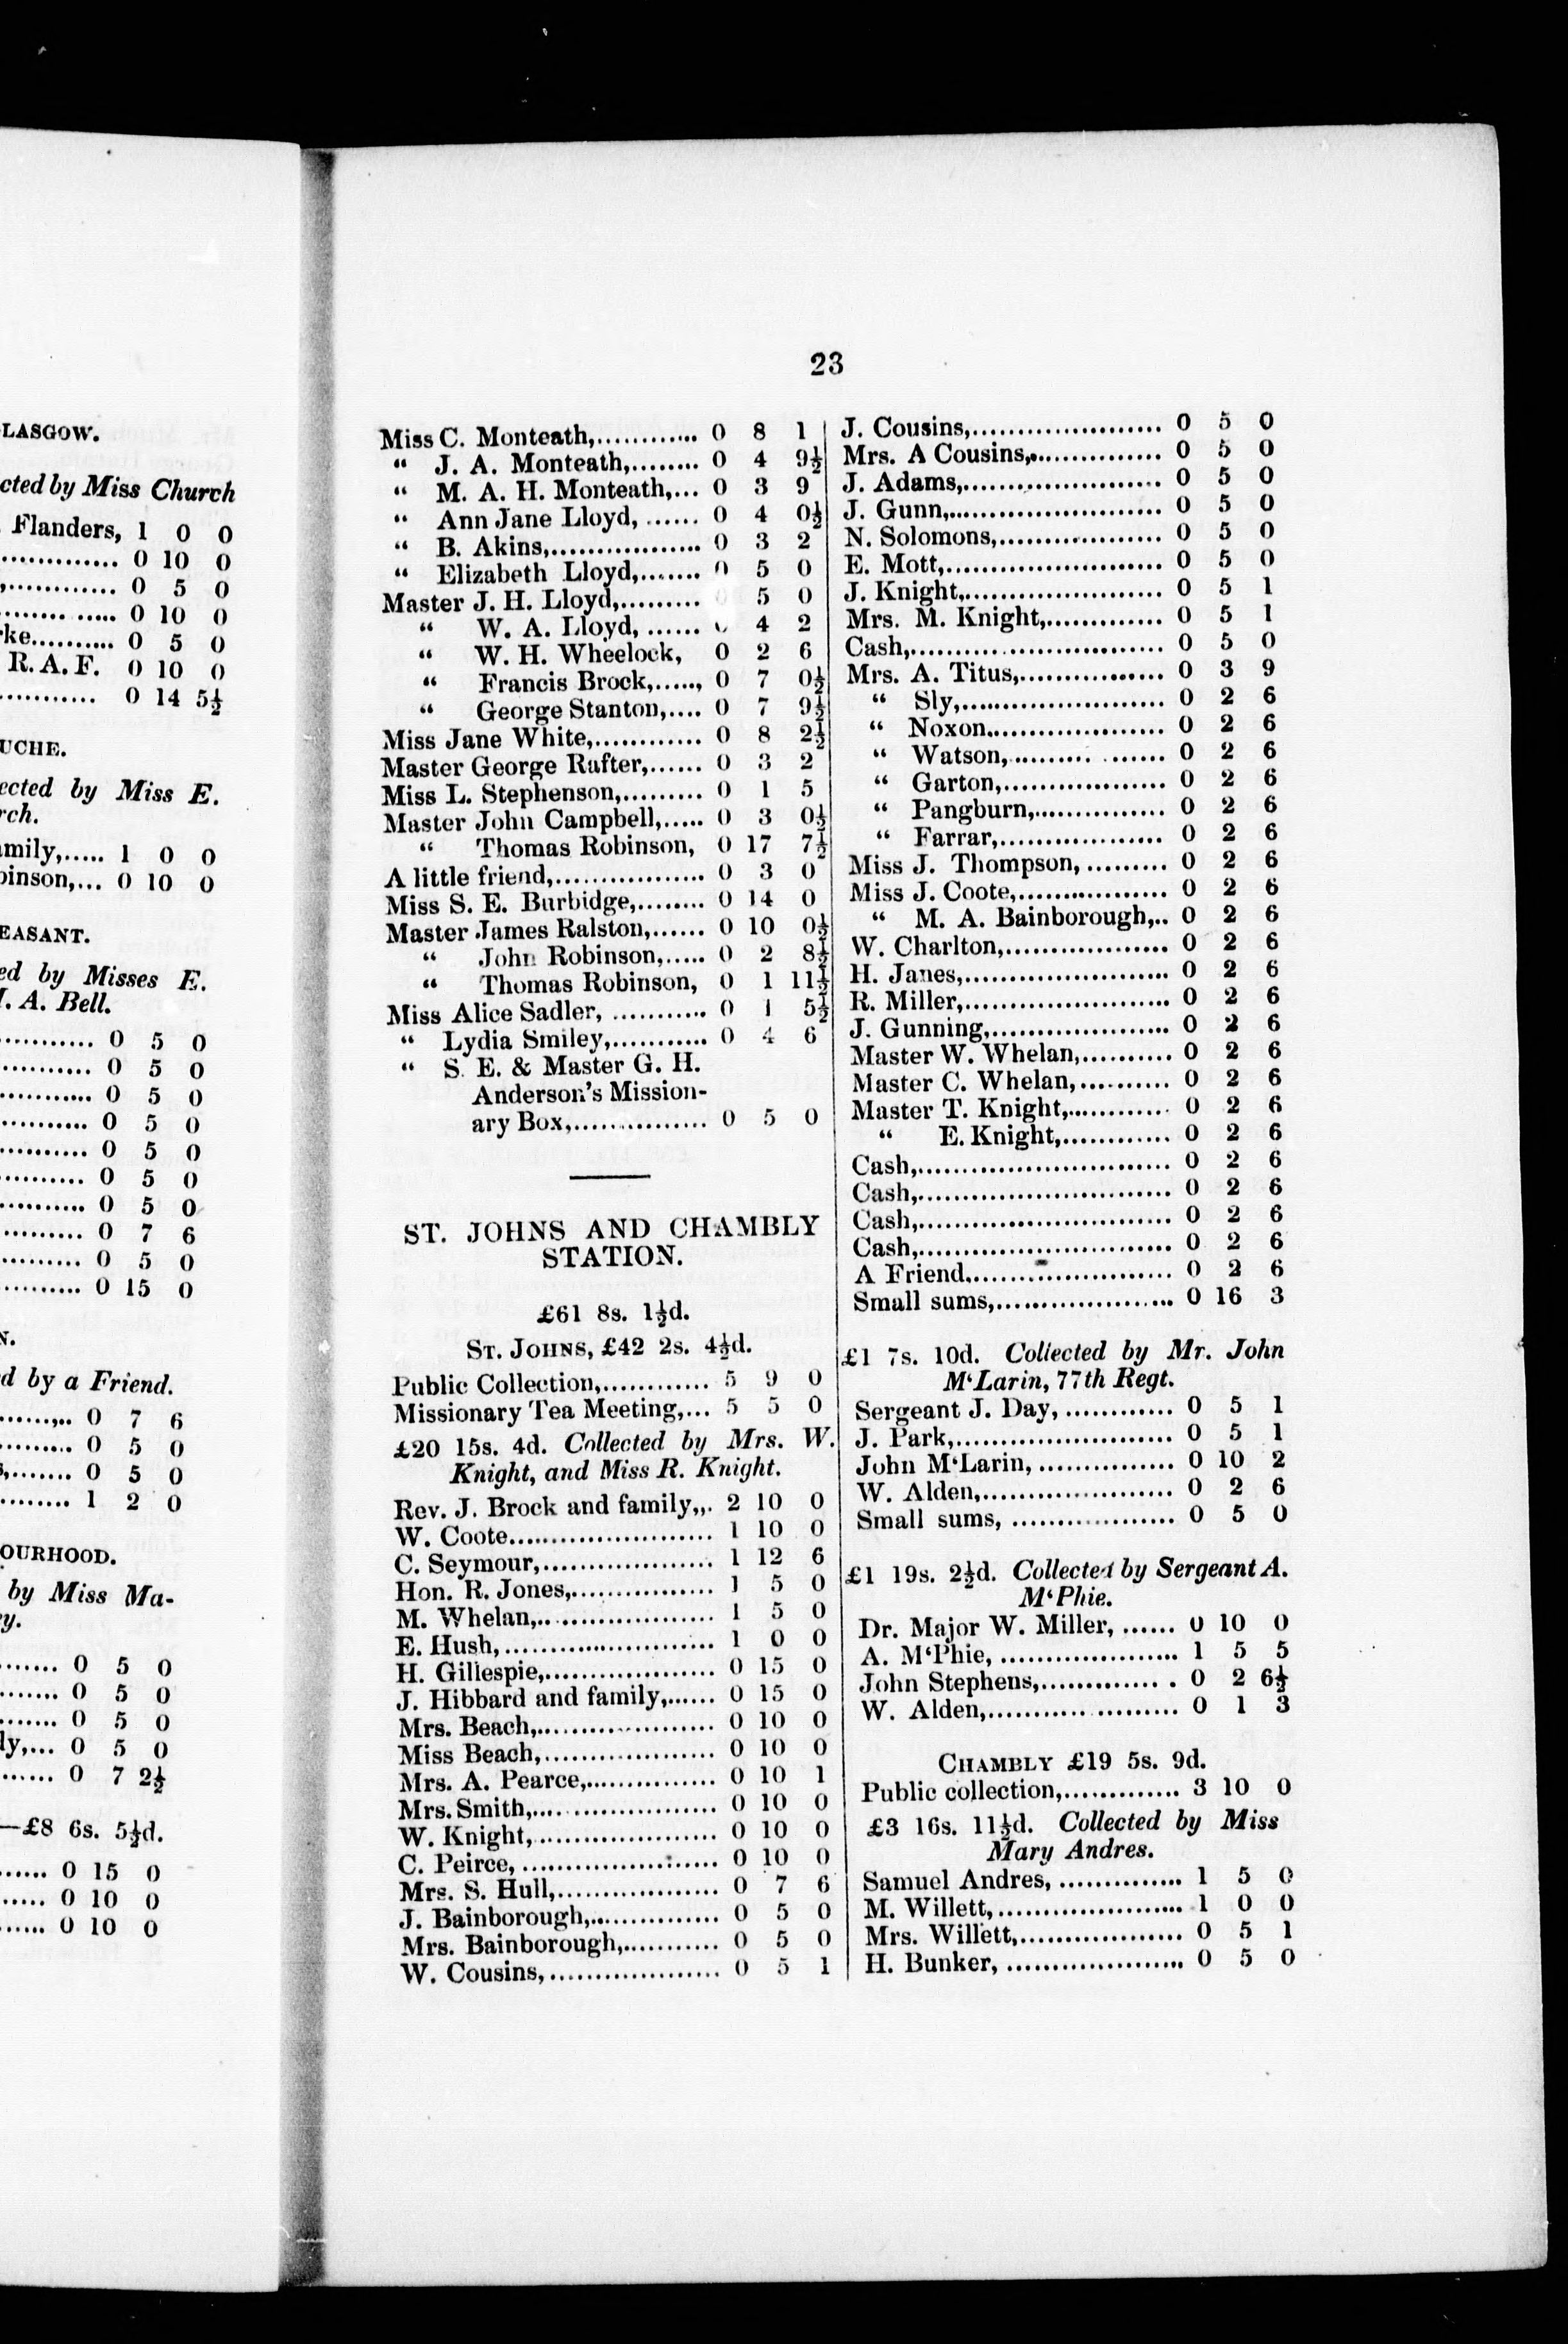 LASGOW.
cted by Miss Church
Flanders, 1 0 0
.............. 0 10 0
,............. 0 5 0
.............. 0 10 0
rke.......... 0 5 0
R. A. F. 0 10 0
........... 0 14 5½
UCHE.
ected by Miss E.
rch.
amily,..... 1 0 0
binson,... 0 10 0
EASANT.
ed by Misses E.
I. A. Bell.
........... 0 5 0
........... 0 5 0
........... 0 5 0
........... 0 5 0
........... 0 5 0
........... 0 5 0
........... 0 5 0
.......... 0 7 6
.......... 0 5 0
.......... 0 15 0
N.
d by a Friend.
......,.. 0 7 6
......... 0 5 0
s,....... 0 5 0
......... 1 2 0
OURHOOD.
by Miss Ma-
y.
....... 0 5 0
....... 0 5 0
....... 0 5 0
ly,... 0 5 0
...... 0 7 2½
—£8 6s. 5½d.
...... 0 15 0
...... 0 10 0
...... 0 10 0
23
Miss C. Monteath,............ 0 8 1
“ J. A. Monteath,........ 0 4 9½
“ M. A. H. Monteath,... 0 3 9
“ Ann Jane Lloyd, ...... 0 4 0½
“ B. Akins,................. 0 3 2
“ Elizabeth Lloyd,....... 0 5 0
Master J. H. Lloyd,......... 5 0
“ W. A. Lloyd, ...... 4 2
“ W. H. Wheelock, 0 2 6
“ Francis Brock,....., 0 7 0½
“ George Stanton,.... 0 7 9½
Miss Jane White,............ 0 8 2½
Master George Rafter,...... 0 3 2
Miss L. Stephenson,......... 0 1 5
Master John Campbell,..... 0 3 0½
“ Thomas Robinson, 0 17 7½
A little friend,................. 0 3 0
Miss S. E. Burbidge,........ 0 14 0
Master James Ralston,...... 0 10 0½
“ John Robinson,..... 0 2 8½
“ Thomas Robinson, 0 1 11½
Miss Alice Sadler, ........... 0 1 5½
“ Lydia Smiley,........... 0 4 6
“ S. E. & Master G. H.
Anderson's Mission-
ary Box,............... 0 5 0
ST. JOHNS AND CHAMBLY
STATION.
£61 8s. 1½d.
ST. JOHNS, £42 2s. 4½d.
Public Collection,............ 5 9 0
Missionary Tea Meeting,... 5 5 0
£20 15s. 4d. Collected by Mrs. W.
Knight, and Miss R. Knight.
Rev. J. Brock and family,,. 2 10 0
W. Coote........................ 1 10 0
C. Seymour,.................... 1 12 6
Hon. R. Jones,................ 1 5 0
M. Whelan,.................... 1 5 0
E. Hush,........................ 1 0 0
H. Gillespie,.................... 0 15 0
J. Hibbard and family,...... 0 15 0
Mrs. Beach,.................... 0 10 0
Miss Beach,.................... 0 10 0
Mrs. A. Pearce,............... 0 10 1
Mrs. Smith,..................... 0 10 0
W. Knight,..................... 0 10 0
C. Peirce, ....................... 0 10 0
Mrs. S. Hull,................... 0 7 6
J. Bainborough,............... 0 5 0
Mrs. Bainborough,........... 0 5 0
W. Cousins,.................... 0 5 1
J. Cousins,...................... 0 5 0
Mrs. A Cousins,............... 0 5 0
J. Adams,....................... 0 5 0
J. Gunn,......................... 0 5 0
N. Solomons,................... 0 5 0
E. Mott,......................... 0 5 0
J. Knight,....................... 0 5 1
Mrs. M. Knight,............. 0 5 1
Cash,............................. 0 5 0
Mrs. A. Titus,................. 0 3 9
“ Sly,........................ 0 2 6
“ Noxon.................... 0 2 6
“ Watson,.......... ...... 0 2 6
“ Garton,................... 0 2 6
“ Pangburn,............... 0 2 6
“ Farrar,................... 0 2 6
Miss J. Thompson, .......... 0 2 6
Miss J. Coote,................. 0 2 6
“ M. A. Bainborough,.. 0 2 6
W. Charlton,................... 0 2 6
H. Janes,........................ 0 2 6
R. Miller,........................ 0 2 6
J. Gunning,..................... 0 2 6
Master W. Whelan,.......... 0 2 6
Master C. Whelan,.......... 0 2 6
Master T. Knight,............ 0 2 6
“ E. Knight,............ 0 2 6
Cash,............................. 0 2 6
Cash,............................. 0 2 6
Cash,............................. 0 2 6
Cash,............................. 0 2 6
A Friend........................ 0 2 6
Small sums,..................... 0 16 3
£1 7s. 10d. Collected by Mr. John
M‘Larin, 77th Regt.
Sergeant J. Day, ............ 0 5 1
J. Park,......................... 0 5 1
John M‘Larin, ............... 0 10 2
W. Alden,...................... 0 2 6
Small sums, ................... 0 5 0
£1 19s. 2½d. Collected by Sergeant A.
M‘Phie.
Dr. Major W. Miller, ...... 0 10 0
A. M‘Phie, ..................... 1 5 5
John Stephens,............. . 0 2 6½
W. Alden,...................... 0 1 3
CHAMBLY £19 5s. 9d.
Public collection,............. 3 10 0
£3 16s. 11½d. Collected by Miss
Mary Andres.
Samuel Andres, .............. 1 5 0
M. Willett,...................... 1 0 0
Mrs. Willett,................... 0 5 1
H. Bunker, ..................... 0 5 0